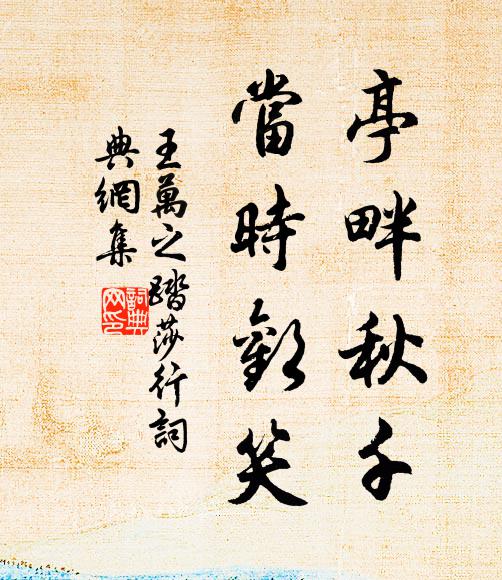 亭畔秋千
當時歡笑
王萬之踏莎行詞
典網集
詞典網印